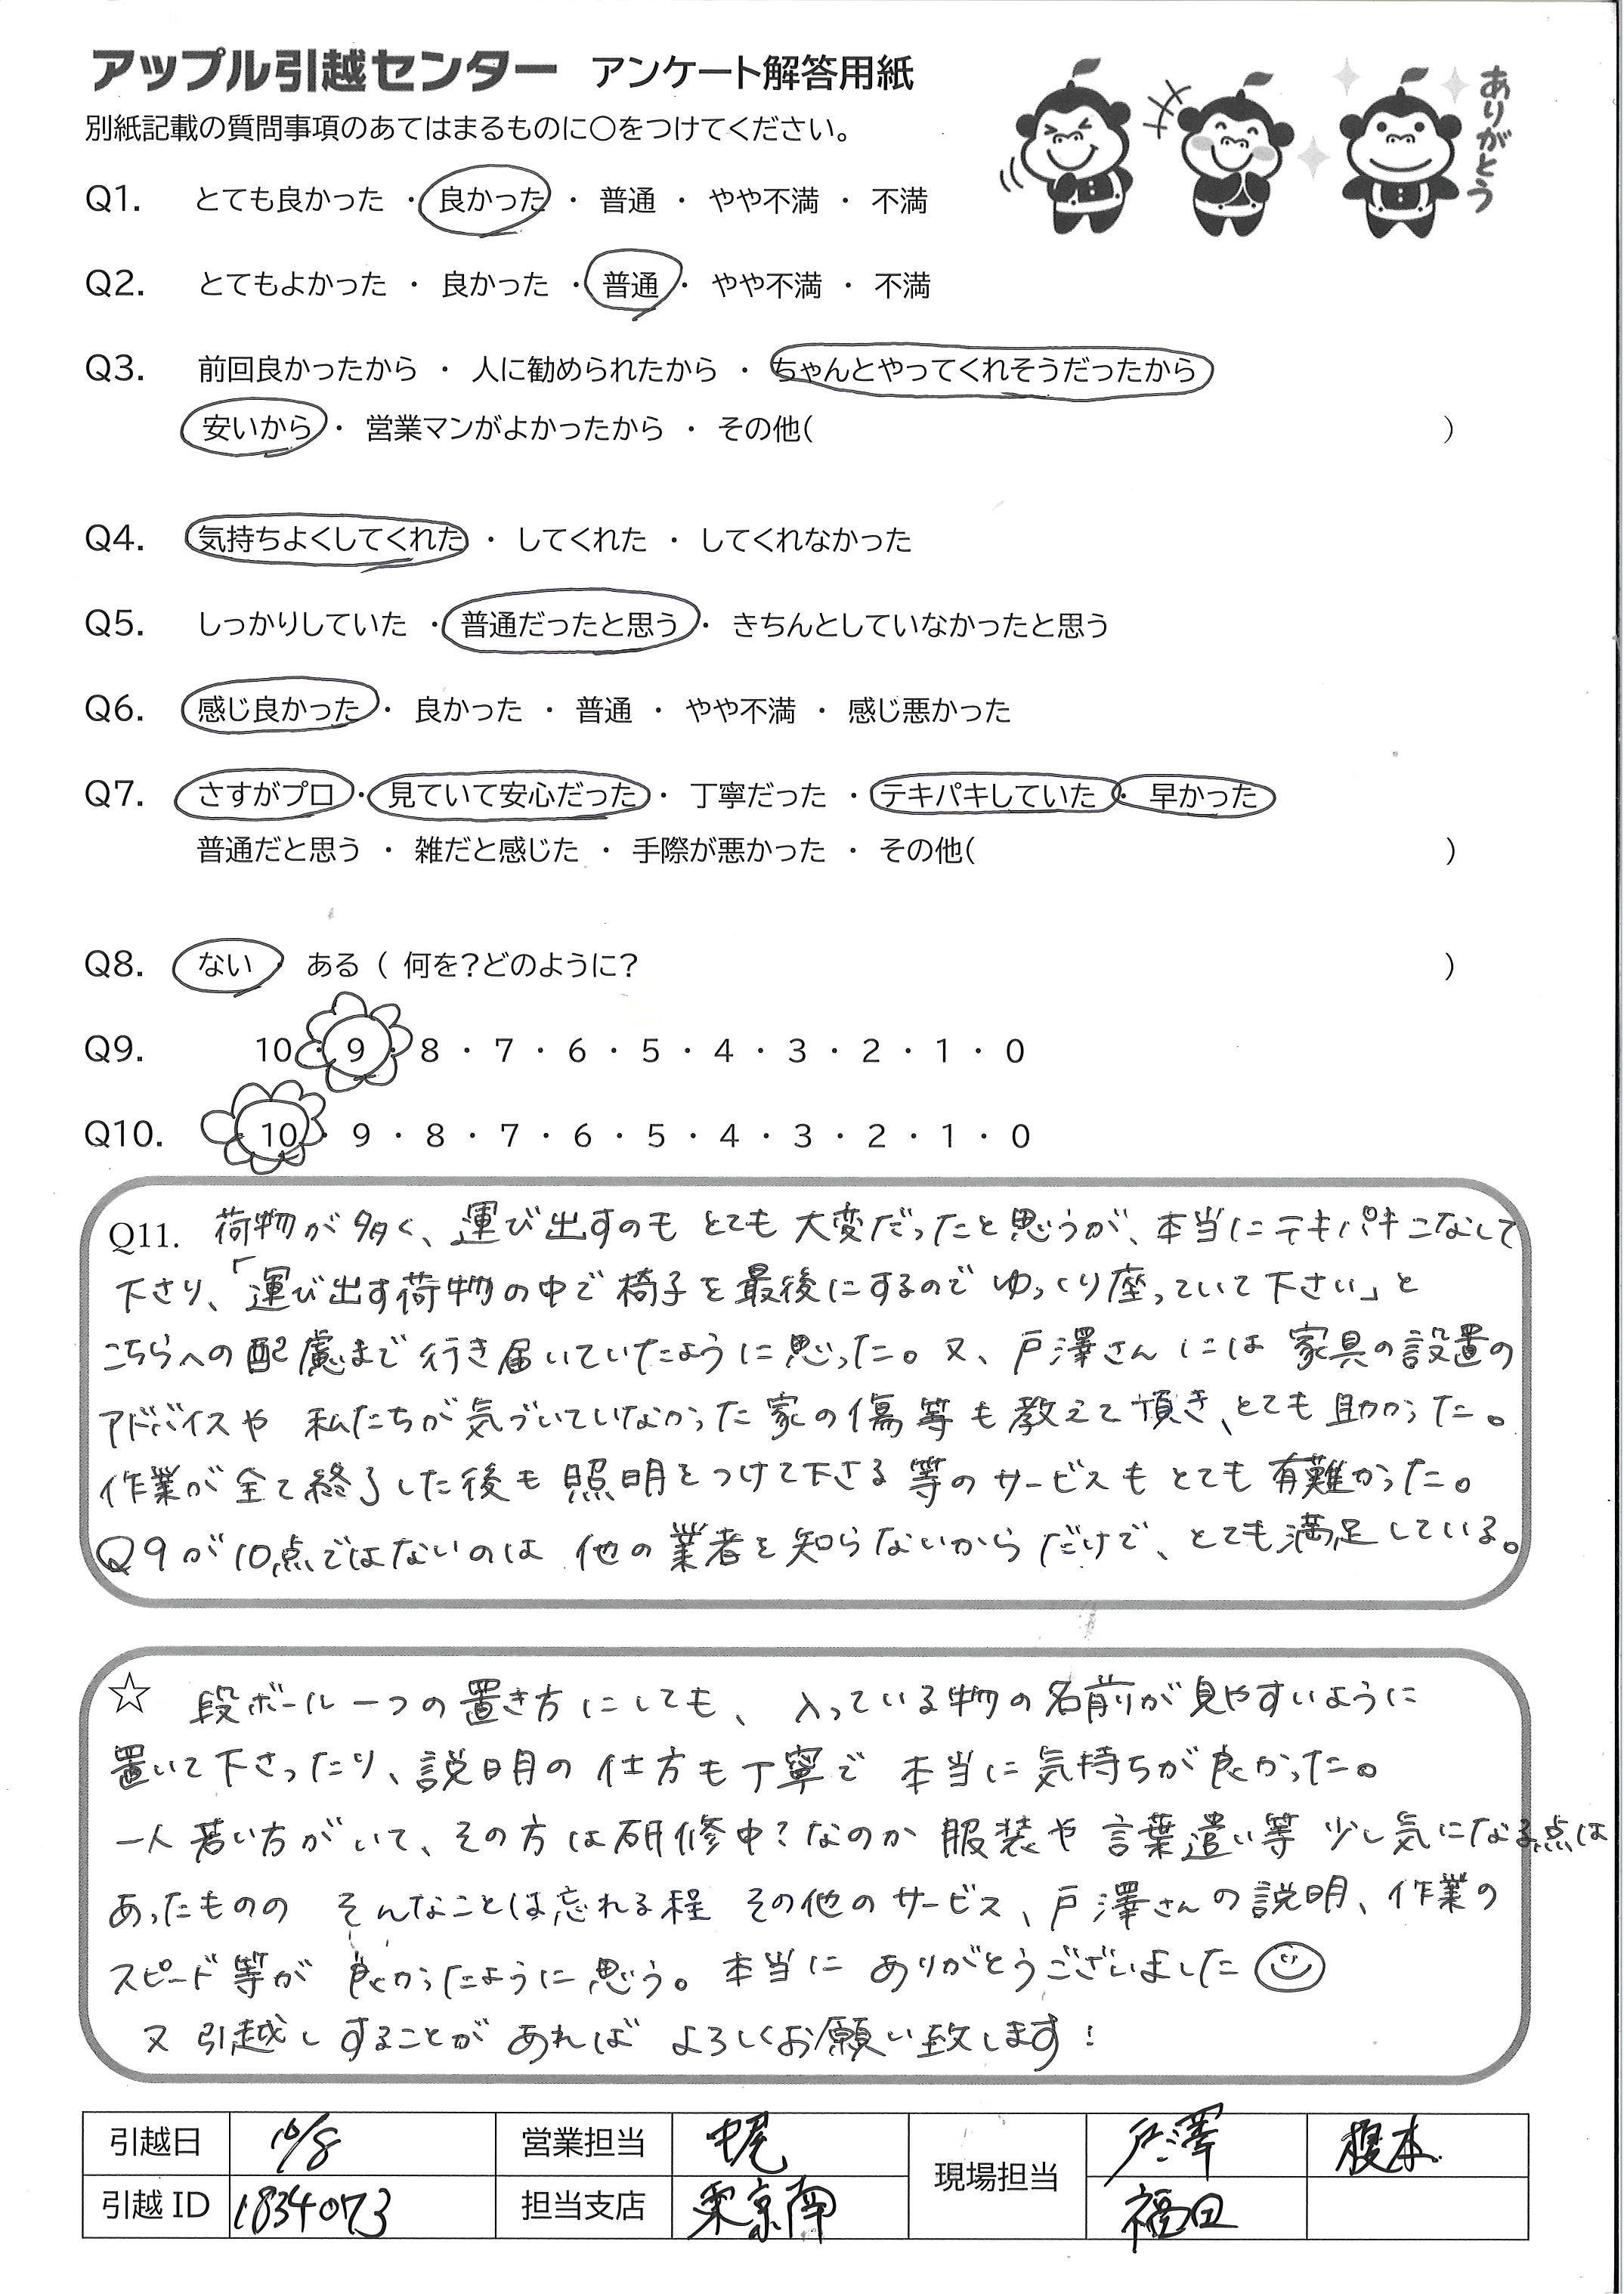 アップル引越センター アンケート解答用紙
別紙記載の質問事項のあてはまるものに○をつけてください。
ありがとう
Q1. とても良かった ・ 良かった ・ 普通 ・ やや不満 ・ 不満
Q2. とてもよかった ・ 良かった ・ 普通 ・ やや不満 ・ 不満
Q3. 前回良かったから ・ 人に勧められたから ・ ちゃんとやってくれそうだったから
安いから ・ 営業マンがよかったから ・ その他( )
Q4. 気持ちよくしてくれた ・ してくれた ・ してくれなかった
Q5. しっかりしていた ・ 普通だったと思う ・ きちんとしていなかったと思う
Q6. 感じ良かった ・ 良かった ・ 普通 ・ やや不満 ・ 感じ悪かった
Q7. さすがプロ ・ 見ていて安心だった ・ 丁寧だった ・ テキパキしていた ・ 早かった
普通だと思う ・ 雑だと感じた ・ 手際が悪かった ・ その他( )
Q8. ない ある ( 何を?どのように? )
Q9. 10 ・ 9 ・ 8 ・ 7 ・ 6 ・ 5 ・ 4 ・ 3 ・ 2 ・ 1 ・ 0
Q10. 10 ・ 9 ・ 8 ・ 7 ・ 6 ・ 5 ・ 4 ・ 3 ・ 2 ・ 1 ・ 0
Q11. 荷物が多く、運び出すのもとても大変だったと思うが、本当にテキパキこなして
下さり、「運び出す荷物の中で椅子を最後にするのでゆっくり座っていて下さい」と
こちらへの配慮まで行き届いていたように思った。又、戸澤さんには家具の設置の
アドバイスや私たちが気づいていなかった家の傷等も教えて頂き、とても助かった。
作業が全て終了した後も照明をつけて下さる等のサービスもとても有難かった。
Q9が10点ではないのは他の業者を知らないからだけで、とても満足している。
☆ 段ボール一つの置き方にしても、入っている物の名前が見やすいように
置いて下さったり、説明の仕方も丁寧で本当に気持ちが良かった。
一人若い方がいて、その方は研修中?なのか服装や言葉遣い等少し気になる点は
あったもののそんなことは忘れる程その他のサービス、戸澤さんの説明、作業の
スピード等が良かったように思う。本当にありがとうございました
又引越しすることがあればよろしくお願い致します!
引越日 10/8 営業担当 中尾 現場担当 戸澤 榎本
引越ID 1834073 担当支店 東京南 福田